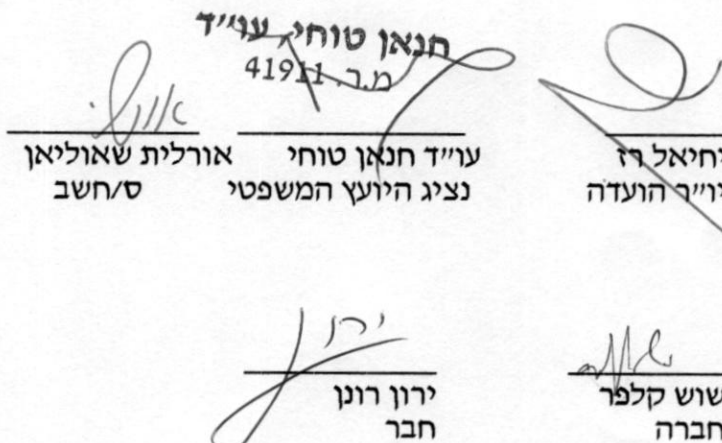 חנאן טוחי, עו״ד
מ.ר. 41911
יחיאל רז
יו״ר הועדה
עו״ד חנאן טוחי
נציג היועץ המשפטי
אורלית שאוליאן
ס/חשב
ירון
שוש קלפר
חברה
ירון רונן
חבר